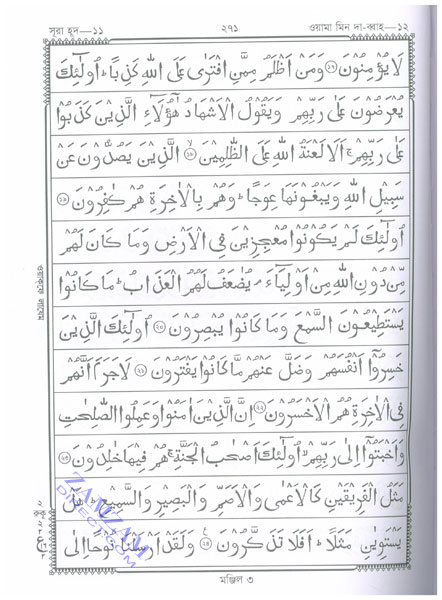 সূরা হূদ—১১ ২৭১ ওয়ামা মিন দা-ব্বাহ—১২
لَا يُؤْمِنُوْنَ ۝١٧ وَمَنْ اَظْلَمُ مِمَّنِ افْتَرٰى عَلَى اللّٰهِ كَذِبًا ؕ اُولٰٓئِكَ
يُعْرَضُوْنَ عَلٰى رَبِّهِمْ وَيَقُوْلُ الْاَشْهَادُ هٰٓؤُلَآءِ الَّذِيْنَ كَذَبُوْا
عَلٰى رَبِّهِمْ ۚ اَلَا لَعْنَةُ اللّٰهِ عَلَى الظّٰلِمِيْنَ ۝١٨ الَّذِيْنَ يَصُدُّوْنَ عَنْ
سَبِيْلِ اللّٰهِ وَيَبْغُوْنَهَا عِوَجًا ؕ وَهُمْ بِالْاٰخِرَةِ هُمْ كٰفِرُوْنَ ۝١٩
اُولٰٓئِكَ لَمْ يَكُوْنُوْا مُعْجِزِيْنَ فِى الْاَرْضِ وَمَا كَانَ لَهُمْ
مِّنْ دُوْنِ اللّٰهِ مِنْ اَوْلِيَآءَ ۘ يُضٰعَفُ لَهُمُ الْعَذَابُ ؕ مَا كَانُوْا
يَسْتَطِيْعُوْنَ السَّمْعَ وَمَا كَانُوْا يُبْصِرُوْنَ ۝٢٠ اُولٰٓئِكَ الَّذِيْنَ
خَسِرُوْٓا اَنْفُسَهُمْ وَضَلَّ عَنْهُمْ مَّا كَانُوْا يَفْتَرُوْنَ ۝٢١ لَا جَرَمَ اَنَّهُمْ
فِى الْاٰخِرَةِ هُمُ الْاَخْسَرُوْنَ ۝٢٢ اِنَّ الَّذِيْنَ اٰمَنُوْا وَعَمِلُوا الصّٰلِحٰتِ
وَاَخْبَتُوْٓا اِلٰى رَبِّهِمْ ۙ اُولٰٓئِكَ اَصْحٰبُ الْجَنَّةِ ۚ هُمْ فِيْهَا خٰلِدُوْنَ ۝٢٣
مَثَلُ الْفَرِيْقَيْنِ كَالْاَعْمٰى وَالْاَصَمِّ وَالْبَصِيْرِ وَالسَّمِيْعِ ؕ هَلْ
يَسْتَوِيٰنِ مَثَلًا ؕ اَفَلَا تَذَكَّرُوْنَ ۝٢٤ وَلَقَدْ اَرْسَلْنَا نُوْحًا اِلٰى
মঞ্জিল ৩
ওয়াকফে লাযেম
ZAMZAM
DIRECT.COM